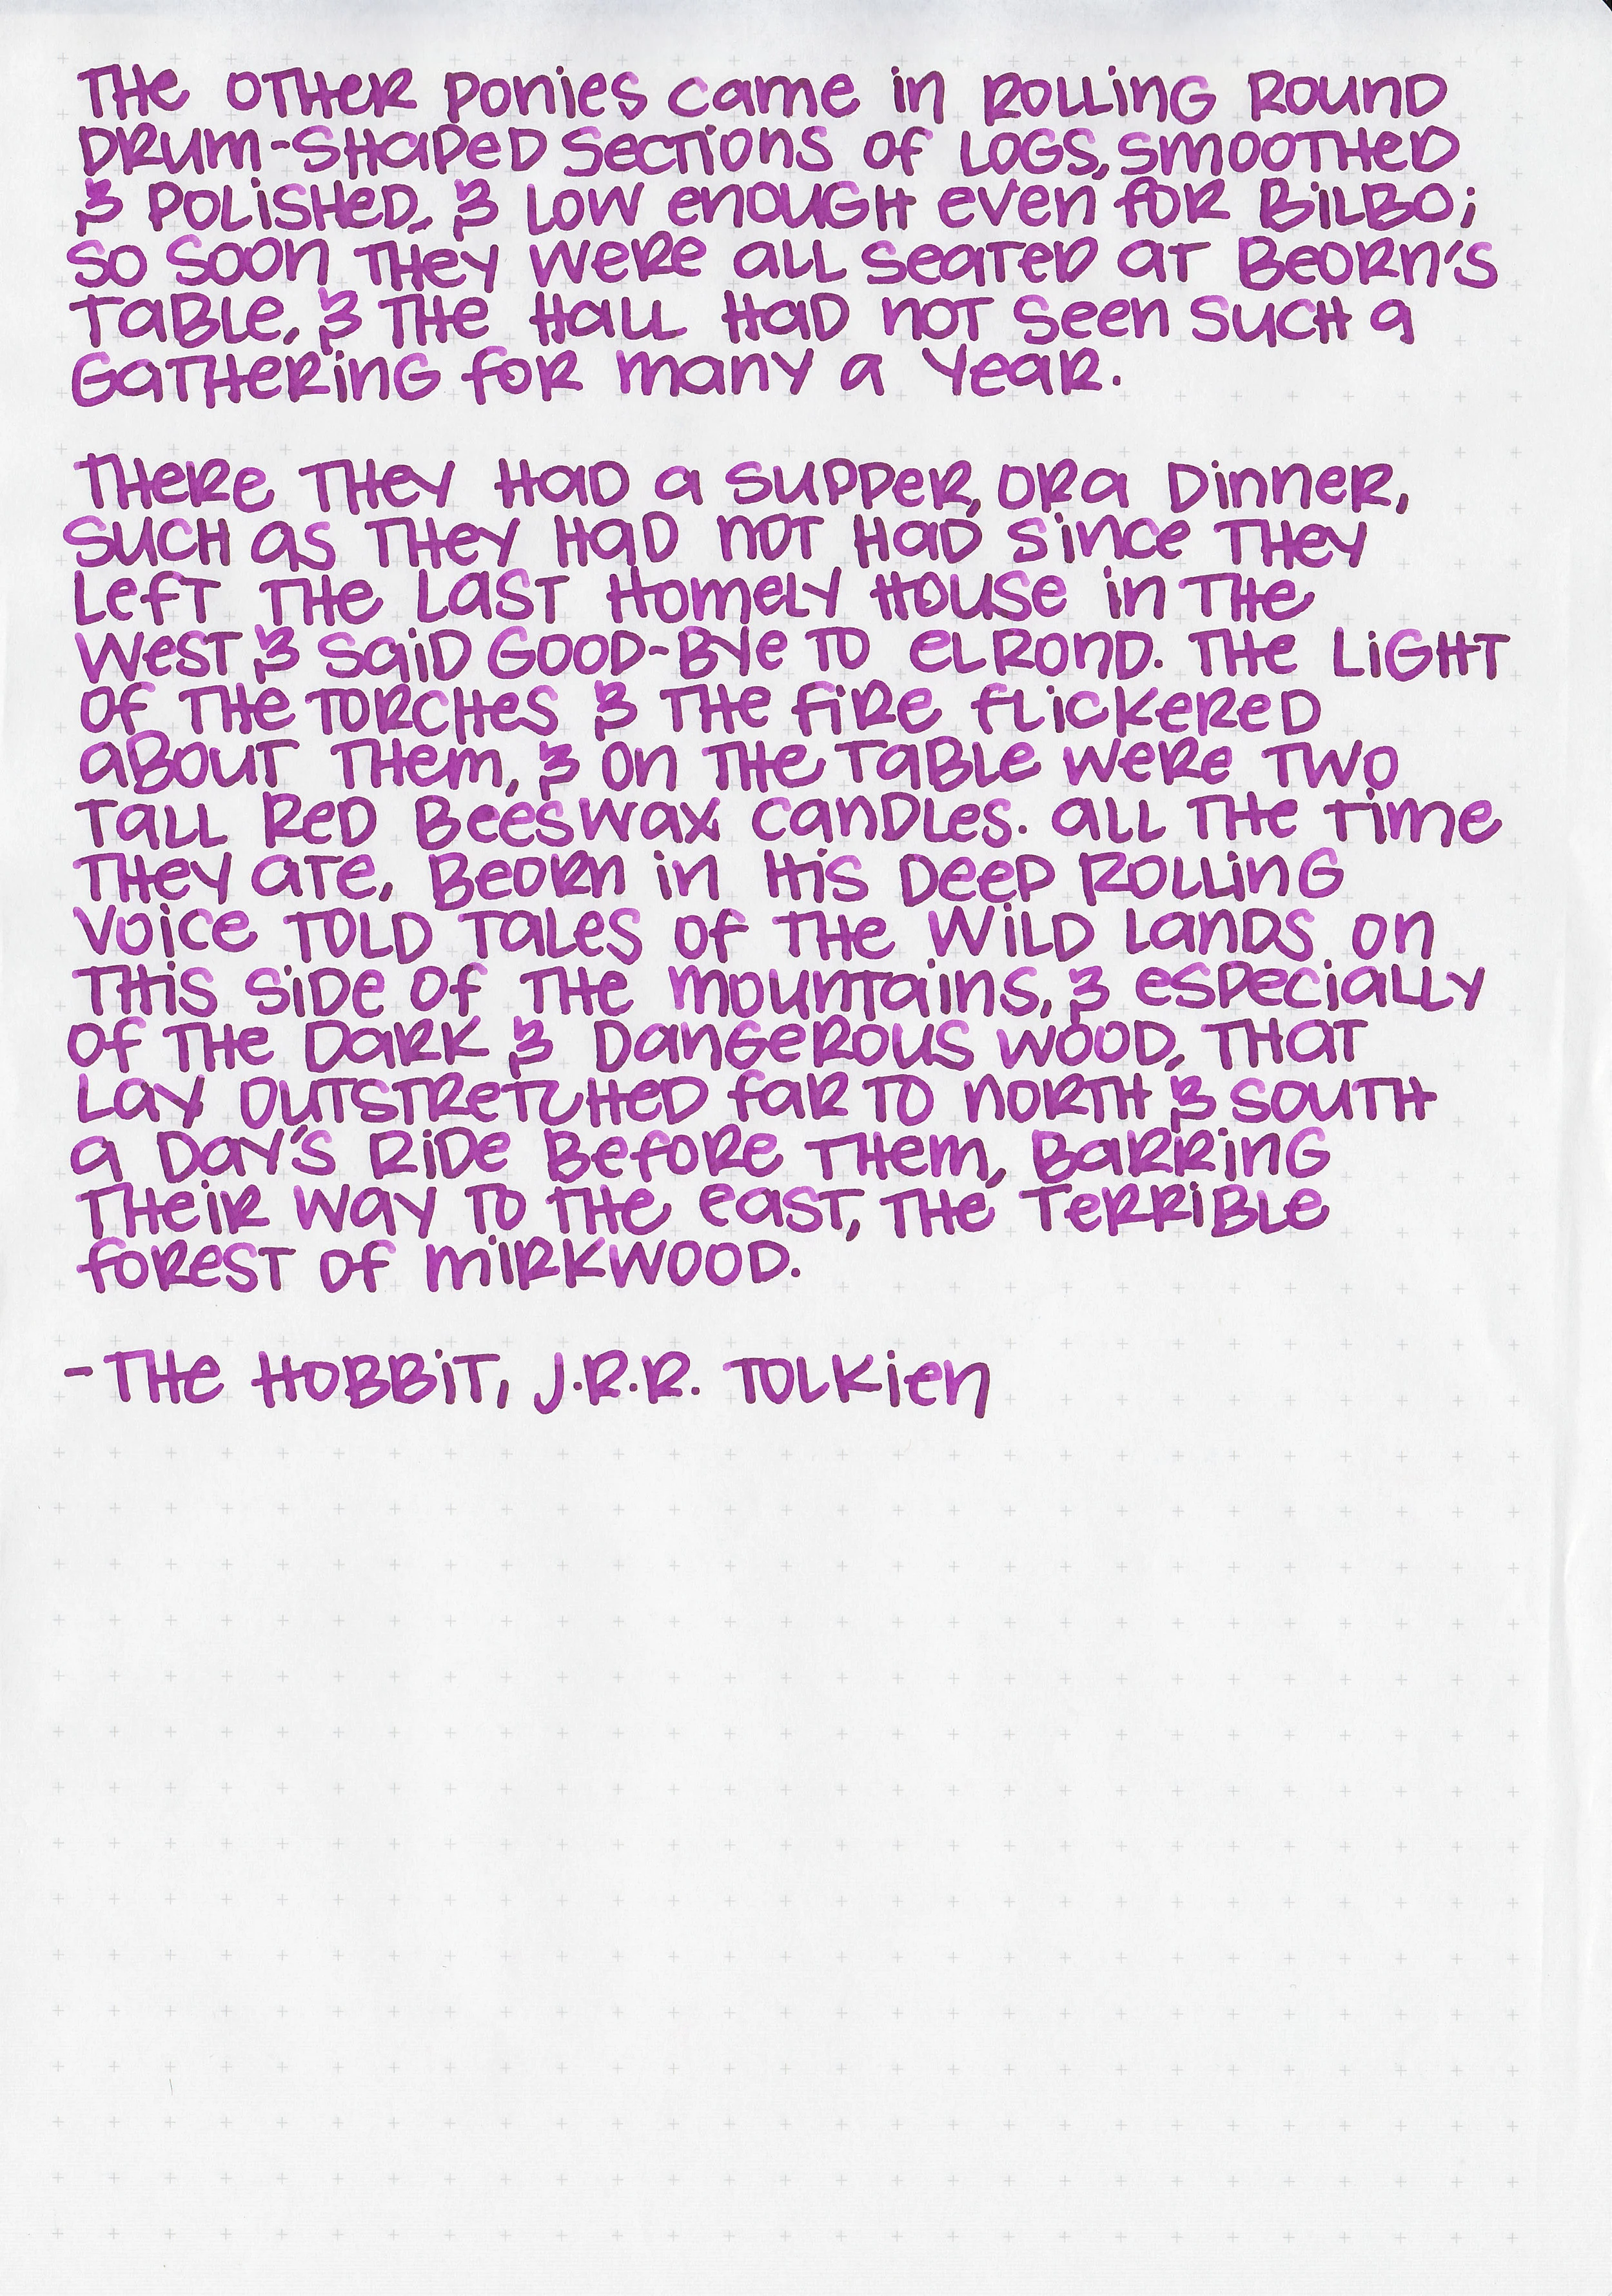 THE OTHER PONIES CAME IN ROLLING ROUND
DRUM-SHAPED SECTIONS OF LOGS, SMOOTHED
& POLISHED, & LOW ENOUGH EVEN FOR BILBO;
SO SOON THEY WERE ALL SEATED AT BEORN'S
TABLE, & THE HALL HAD NOT SEEN SUCH A
GATHERING FOR MANY A YEAR.

THERE THEY HAD A SUPPER, OR A DINNER,
SUCH AS THEY HAD NOT HAD SINCE THEY
LEFT THE LAST HOMELY HOUSE IN THE
WEST & SAID GOOD-BYE TO ELROND. THE LIGHT
OF THE TORCHES & THE FIRE FLICKERED
ABOUT THEM, & ON THE TABLE WERE TWO
TALL RED BEESWAX CANDLES. ALL THE TIME
THEY ATE, BEORN IN HIS DEEP ROLLING
VOICE TOLD TALES OF THE WILD LANDS ON
THIS SIDE OF THE MOUNTAINS, & ESPECIALLY
OF THE DARK & DANGEROUS WOOD, THAT
LAY OUTSTRETCHED FAR TO NORTH & SOUTH
A DAY'S RIDE BEFORE THEM, BARRING
THEIR WAY TO THE EAST, THE TERRIBLE
FOREST OF MIRKWOOD.

-THE HOBBIT, J.R.R. TOLKIEN